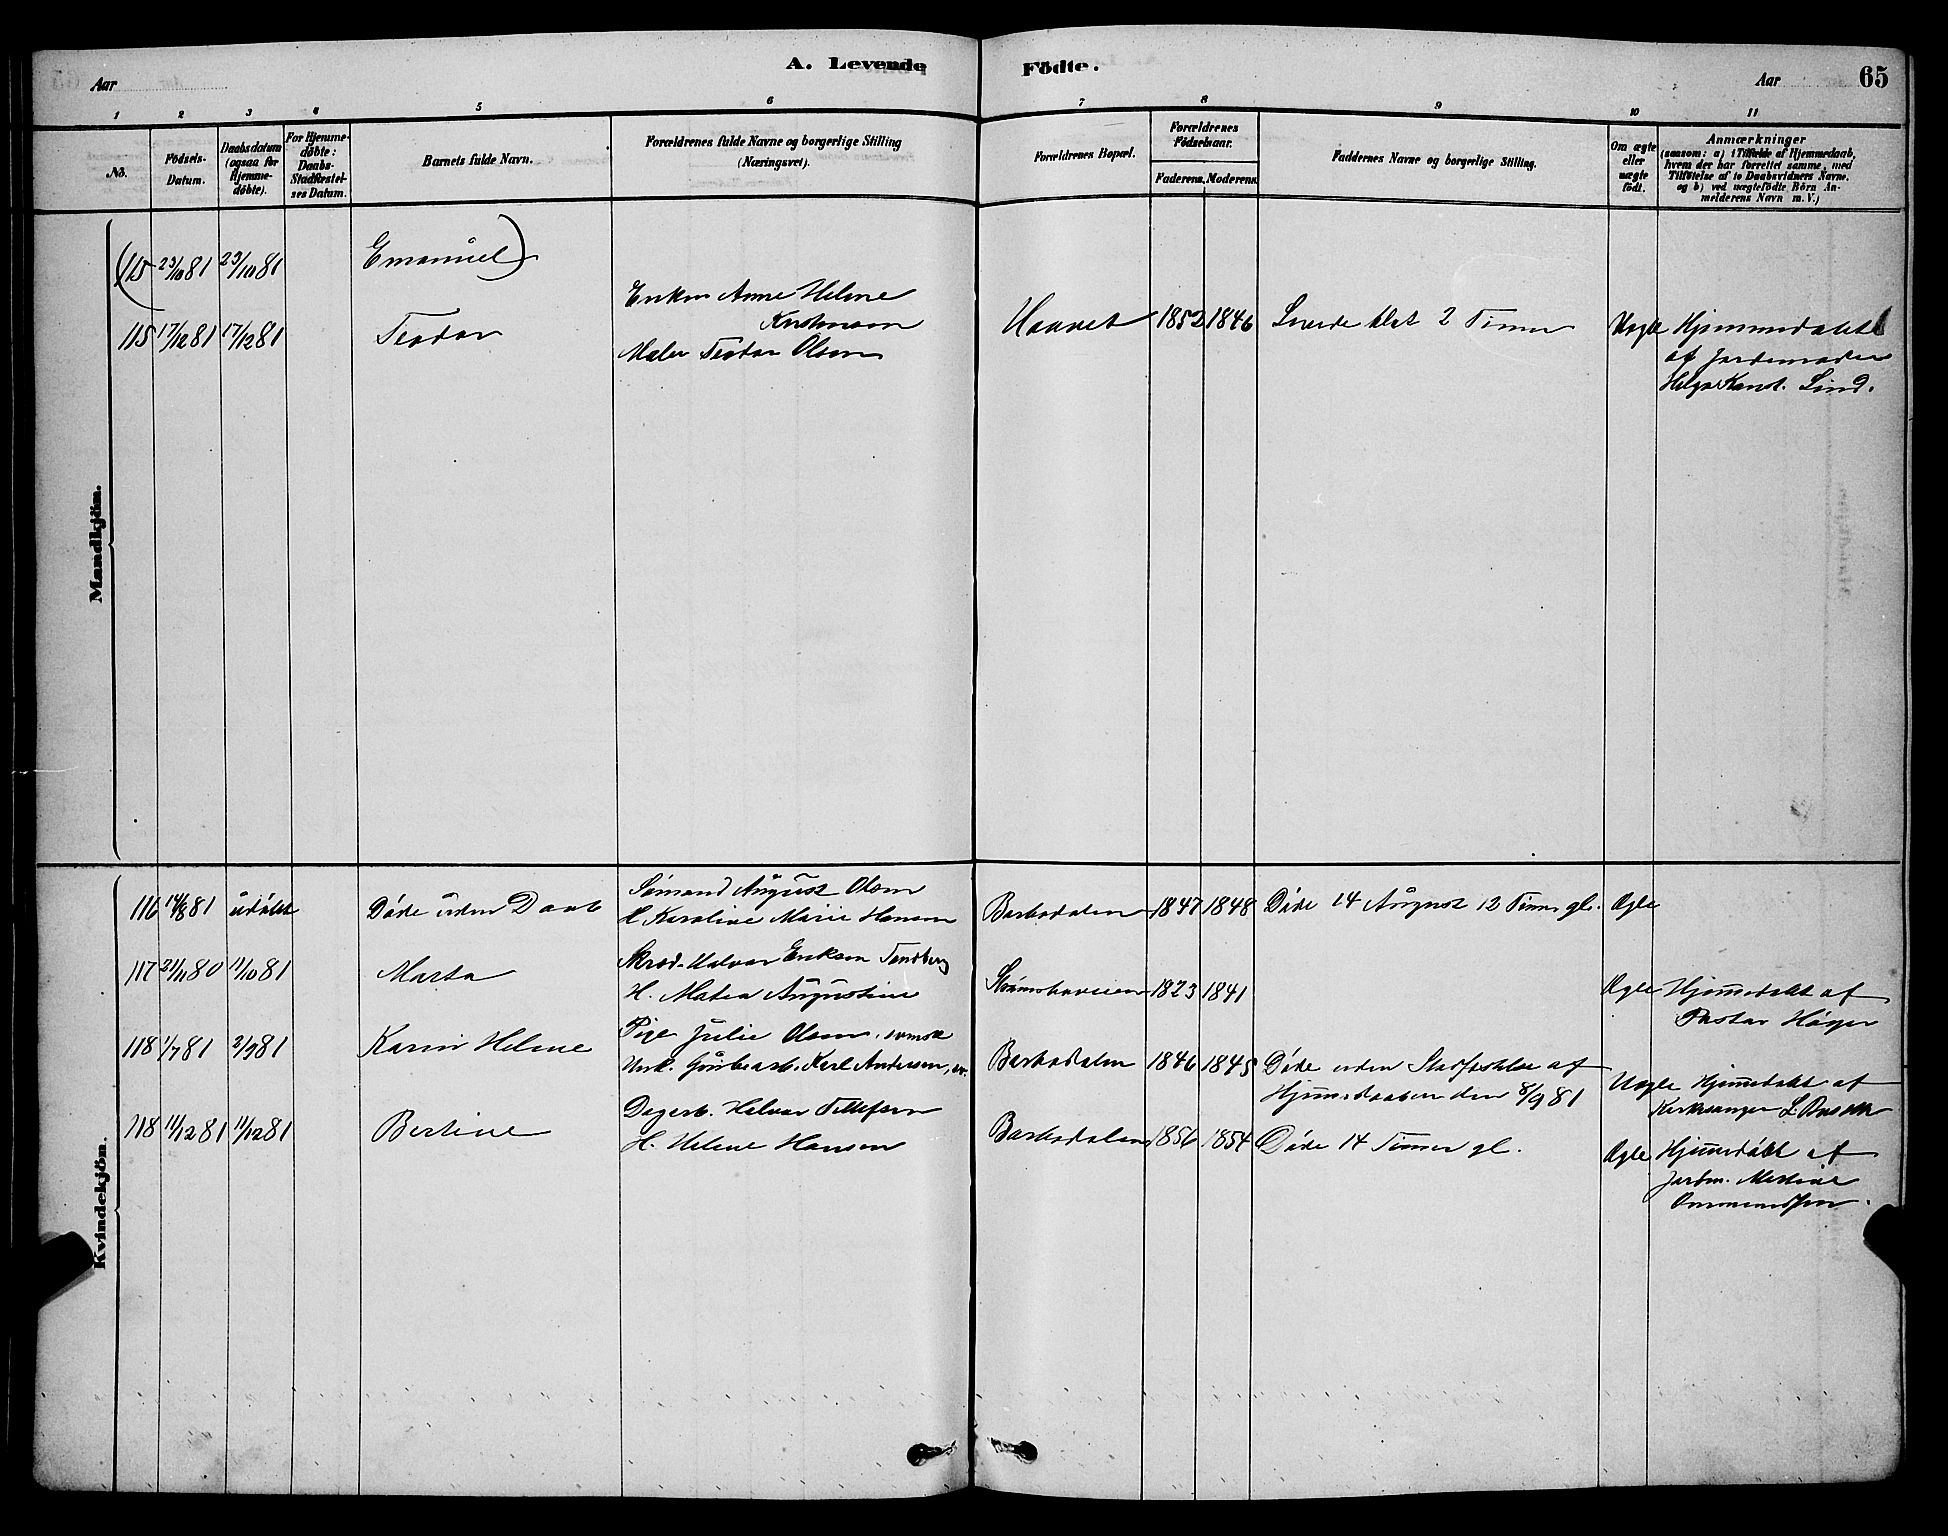 Aar
A. Levende Födte.
Aar
65
1 2 3 4 5 6 7 8 9 10 11
No.
Födsels-Datum.
Daabsdatum (ogsaa for Hjemme-döbte).
For Hjemme-döbte: Daabs-Stadfæstel-ses Datum.
Barnets fulde Navn.
Forældrenes fulde Navne og borgerlige Stilling (Næringsvei).
Forældrenes Bopæl.
Forældrenes Födselsaar.
Faderens. Moderens.
Faddernes Navne og borgerlige Stilling.
Om ægte eller uægte födt.
Anmærkninger
(saasom: a) i Tilfælde af Hjemmedaab,
hvem der har forrettet samme, med
Tilföielse af to Daabsvidners Navne.
og b) ved uægtefödte Börn An-
melderens Navn m. V.)
Mandkjön.
(115 23/10 81 23/10 81 Emanuel)
Enken Anne Helene
115 17/12 81 17/12 81 Teodor
Maler Teodor Olsen
1852 1846
2 Timer
Uægte Hjemmedøbt
af Jordemoder
Lind.
Kvindekjön.
116 14/8 81 udøbt Døde uden Daab
Sömand August Olsen
H. Karoline Marie Hansen
1847 1848 Døde 14 August 12 Timer gl. Ægte
117 21/11 80 11/10 81 Marta
Skræd. Halvor Eriksen Tandberg
H. Matea Augustine
1823 1841
Ægte Hjemmedøbt af
Pastor
118 1/7 81 2/9 81 Karin Helene
Pige Julie Olsen, svensk
Unk. Karl Andersen, sv.
1846 1845 Døde uden Stadfæstelse af
Hjemmedaaben den 8/9 81
Uægte Hjemmedøbt af
Kirkesanger
118 11/12 81 11/12 81 Bertine
Dagarb. Halvor Tellefsen
H. Helene Hansen
1856 1854 Døde 14 Timer gl.
Ægte Hjemmedøbt af
Jordm.